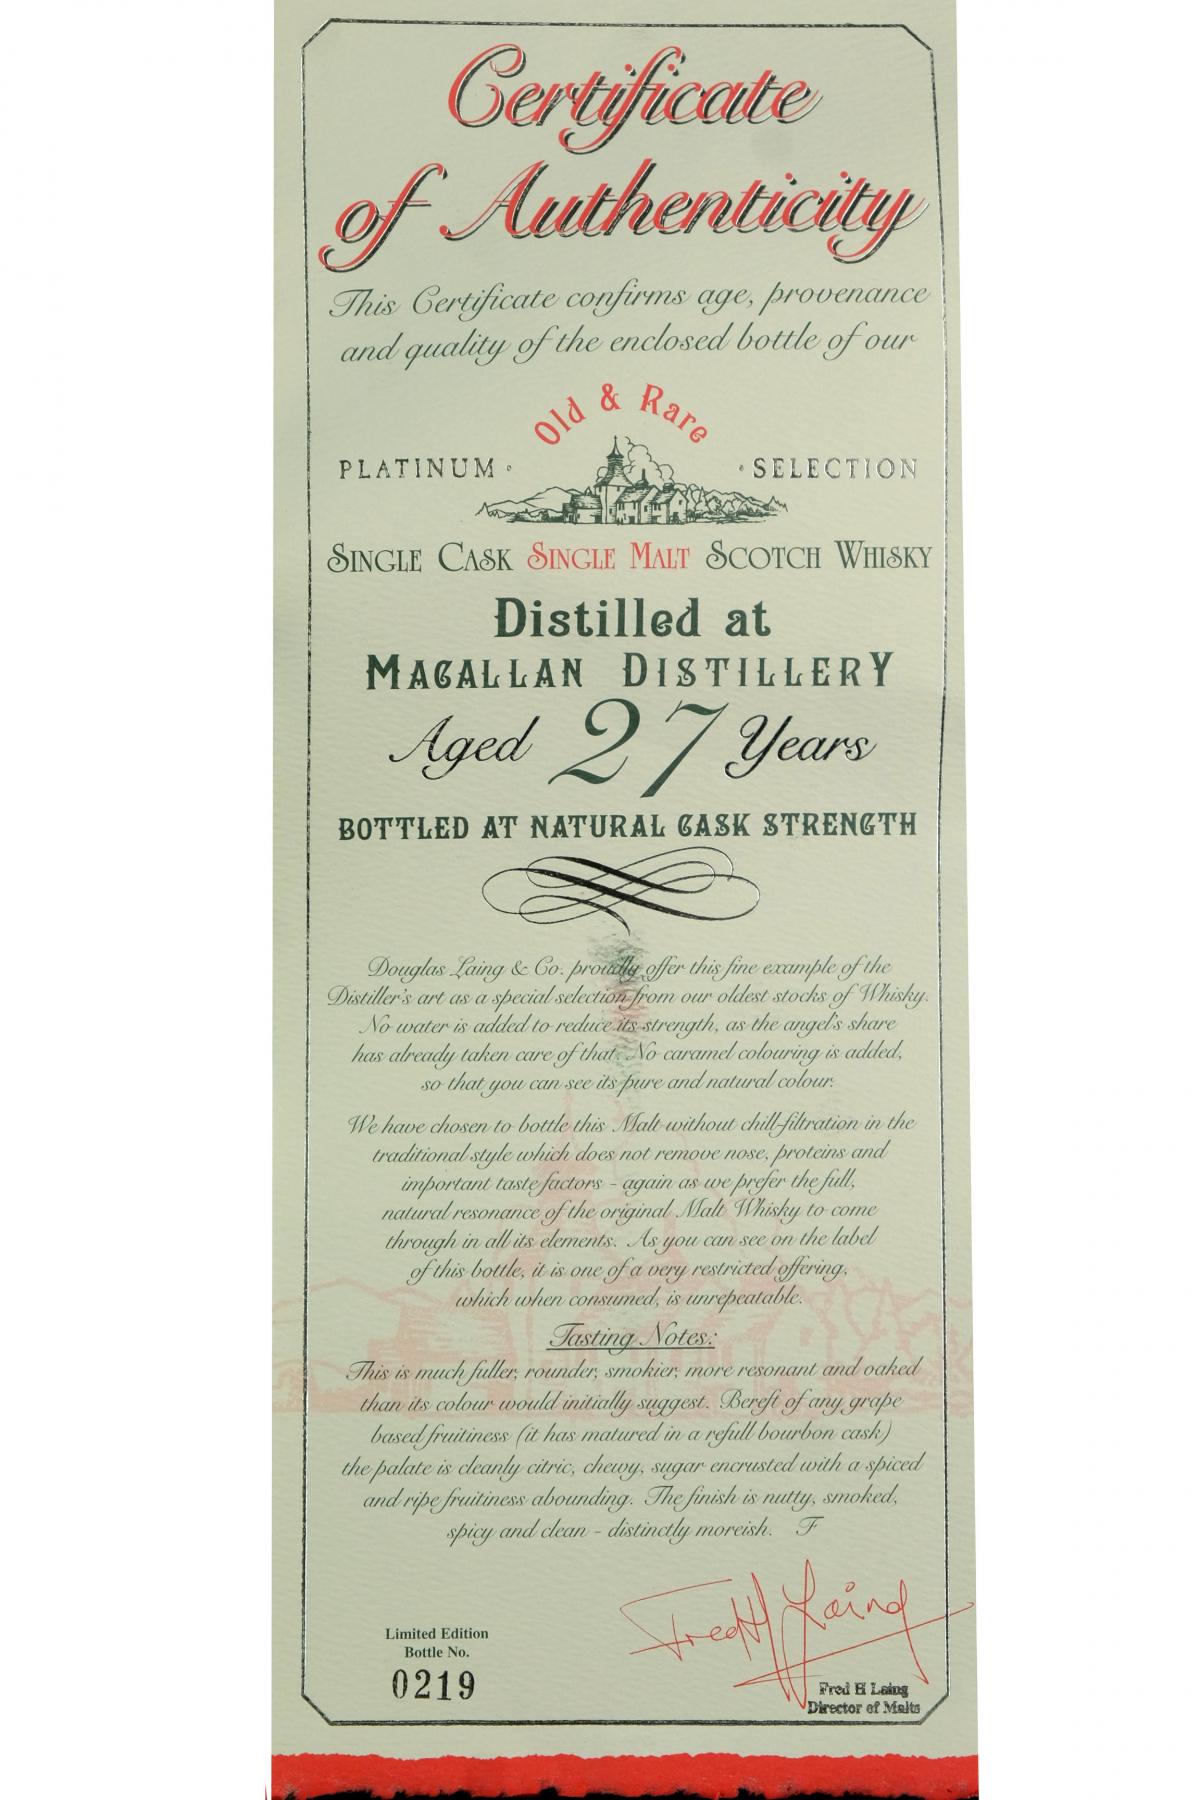 Certificate
of Authenticity
This Certificate confirms age, provenance
and quality of the enclosed bottle of our
Old & Rare
PLATINUM · · SELECTION
SINGLE CASK SINGLE MALT SCOTCH WHISKY
Distilled at
MACALLAN DISTILLERY
Aged 27 Years
BOTTLED AT NATURAL CASK STRENGTH
Douglas Laing & Co. proudly offer this fine example of the
Distiller's art as a special selection from our oldest stocks of Whisky.
No water is added to reduce its strength, as the angel's share
has already taken care of that. No caramel colouring is added,
so that you can see its pure and natural colour.
We have chosen to bottle this Malt without chill-filtration in the
traditional style which does not remove nose, proteins and
important taste factors - again as we prefer the full,
natural resonance of the original Malt Whisky to come
through in all its elements. As you can see on the label
of this bottle, it is one of a very restricted offering,
which when consumed, is unrepeatable.
Tasting Notes:
This is much fuller, rounder, smokier, more resonant and oaked
than its colour would initially suggest. Bereft of any grape
based fruitiness (it has matured in a refull bourbon cask)
the palate is cleanly citric, chewy, sugar encrusted with a spiced
and ripe fruitiness abounding. The finish is nutty, smoked,
spicy and clean - distinctly moreish. F
Fred H Laing
Limited Edition
Bottle No.
0219
Fred H Laing
Director of Malts